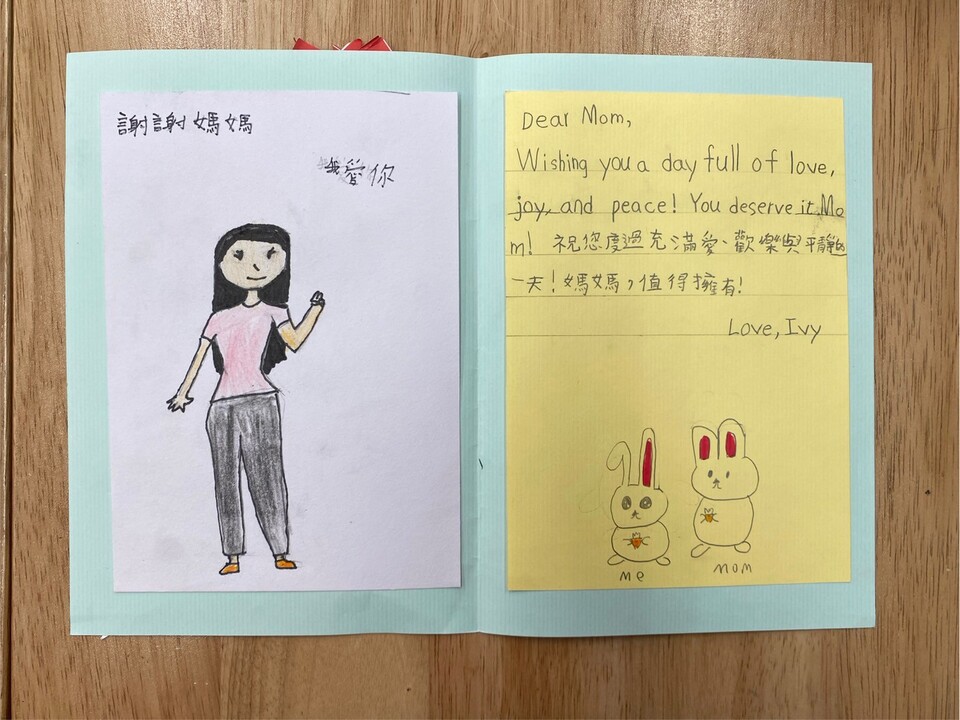 謝謝媽媽
我愛你
Dear Mom,
Wishing you a day full of love,
joy, and peace! You deserve it, Mo
m! 祝您度過充滿愛、歡樂與平靜的
一天!媽媽,值得擁有!
Love, Ivy
me
mom